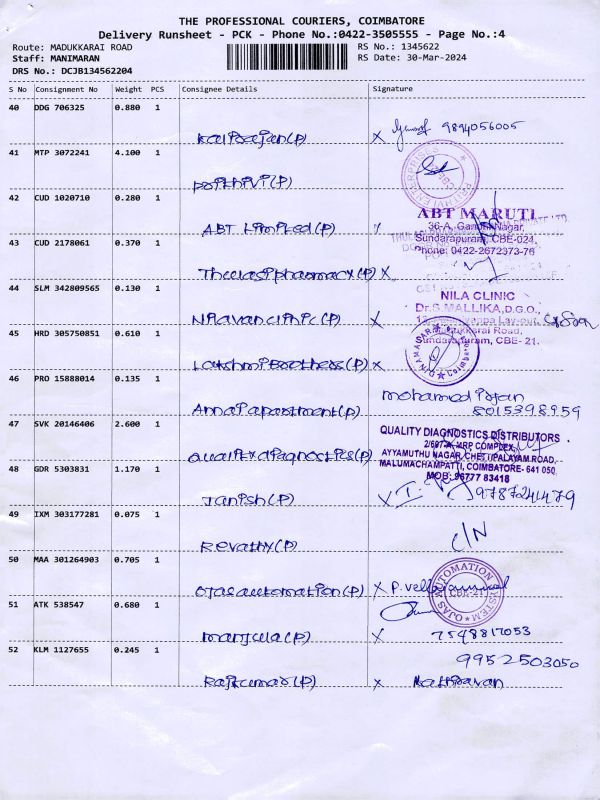 THE PROFESSIONAL COURIERS, COIMBATORE
Delivery Runsheet - PCK - Phone No.:0422-3505555 - Page No.:4
Route: MADUKKARAI ROAD
RS No.: 1345622
Staff: MANIMARAN
RS Date: 30-Mar-2024
DRS No.: DCJB134562204
S No Consignment No Weight PCS Consignee Details Signature
40 DDG 706325 0.880 1
9894056005
41 MTP 3072241 4.100 1
Prithivi(P)
42 CUD 1020710 0.280 1
ABT Limited(P)
ABT MARUTI
36-A, Gandhi Nagar,
Sundarapuram, CBE-024
Phone: 0422-2672373-76
43 CUD 2178061 0.370 1
Thulasi pharmacy(P) X
44 SLM 342809565 0.130 1
Nilavan clinic(P) X
NILA CLINIC
Dr.S.MALLIKA,D.G.O.,
Madukkarai Road,
Sundarapuram, CBE- 21.
45 HRD 305750851 0.610 1
Lakshmi Brothers(P) X
46 PRO 15888014 0.135 1
Annai apartment(P)
mohamed
8015398959
47 SVK 20146406 2.600 1
Qualityx diagnostics(P)
QUALITY DIAGNOSTICS DISTRIBUTORS
MRP COMPLEX,
AYYAMUTHU NAGAR, CHETTIPALAYAM ROAD,
MALUMACHAMPATTI, COIMBATORE- 641 050.
MOB: 96777 83418
48 GDR 5303831 1.170 1
Janish(P) X
9787241479
49 IXM 303177281 0.075 1
Revathy(P)
C/N
50 MAA 301264903 0.705 1
Ojas automation(P) X P.
OJAS AUTOMATION SYSTEM
CBE-21
51 ATK 538547 0.680 1
Manjula(P) X 7548817053
52 KLM 1127655 0.245 1
9952503050
Rajkumar(P) X Kathiravan